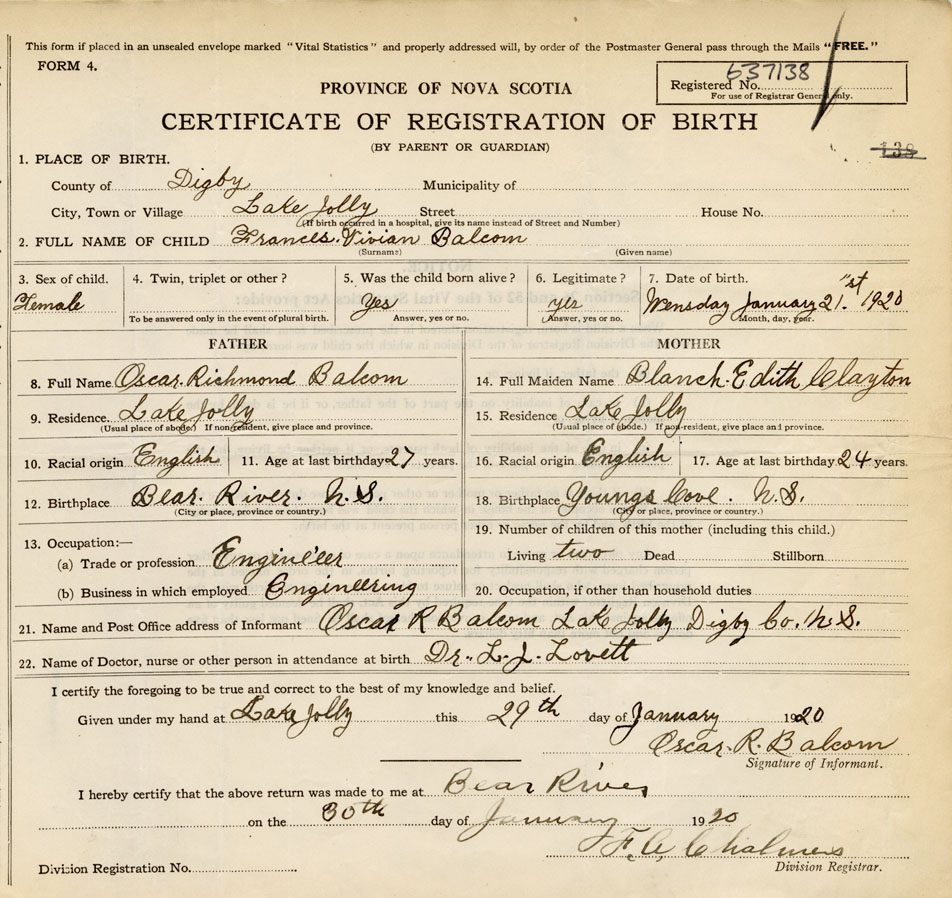 This form if placed in an unsealed envelope marked "Vital Statistics" and properly addressed will, by order of the Postmaster General pass through the Mails "FREE."
FORM 4.
637138
Registered No.
For use of Registrar General only.
PROVINCE OF NOVA SCOTIA
CERTIFICATE OF REGISTRATION OF BIRTH
(BY PARENT OR GUARDIAN)
138
1. PLACE OF BIRTH.
County of Digby Municipality of
City, Town or Village Lake Jolly Street House No.
(If birth occurred in a hospital, give its name instead of Street and Number)
2. FULL NAME OF CHILD Frances. Vivian Balcom
(Surname) (Given name)
3. Sex of child. 4. Twin, triplet or other? 5. Was the child born alive? 6. Legitimate? 7. Date of birth.
Female Yes yes Wensday January 21. "st 1920
To be answered only in the event of plural birth. Answer, yes or no. Answer, yes or no. Month, day, year.
FATHER MOTHER
8. Full Name Oscar. Richmond Balcom 14. Full Maiden Name Blanch. Edith Clayton
9. Residence. Lake Jolly 15. Residence Lake Jolly
(Usual place of abode.) If non-resident, give place and province. (Usual place of abode.) If non-resident, give place and province.
10. Racial origin English 11. Age at last birthday 27 years. 16. Racial origin English 17. Age at last birthday 24 years.
12. Birthplace Bear. River. N.S. 18. Birthplace Youngs Cove. N.S.
(City or place, province or country.) (City or place, province or country.)
13. Occupation:— 19. Number of children of this mother (including this child.)
(a) Trade or profession Engineer Living two Dead Stillborn
(b) Business in which employed Engineering 20. Occupation, if other than household duties
21. Name and Post Office address of Informant Oscar R Balcom Lake Jolly Digby Co. N.S.
22. Name of Doctor, nurse or other person in attendance at birth Dr. L. J. Lovett
I certify the foregoing to be true and correct to the best of my knowledge and belief.
Given under my hand at Lake Jolly this 29th day of January 1920
Oscar. R. Balcom
Signature of Informant.
I hereby certify that the above return was made to me at Bear River
on the 30th day of January 1920
F. A. Chalmers
Division Registration No. Division Registrar.